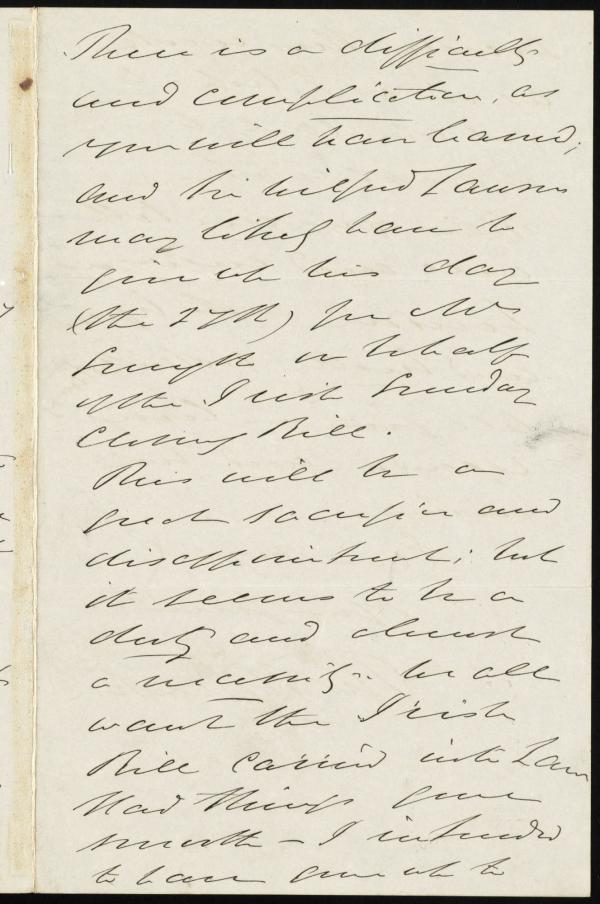 There is a difficulty
and complication, as
you will have learned;
and Sir Wilfrid Lawson
may likely have to
give up his day
(the 27th) for Mr
Smyth on behalf
of the Irish Sunday
Closing Bill.
This will be a
great sacrifice and
disappointment; but
it seems to be a
duty and almost
a necessity. We all
want the Irish
Bill carried into Law
Had things gone
smooth – I intended
to have gone up to